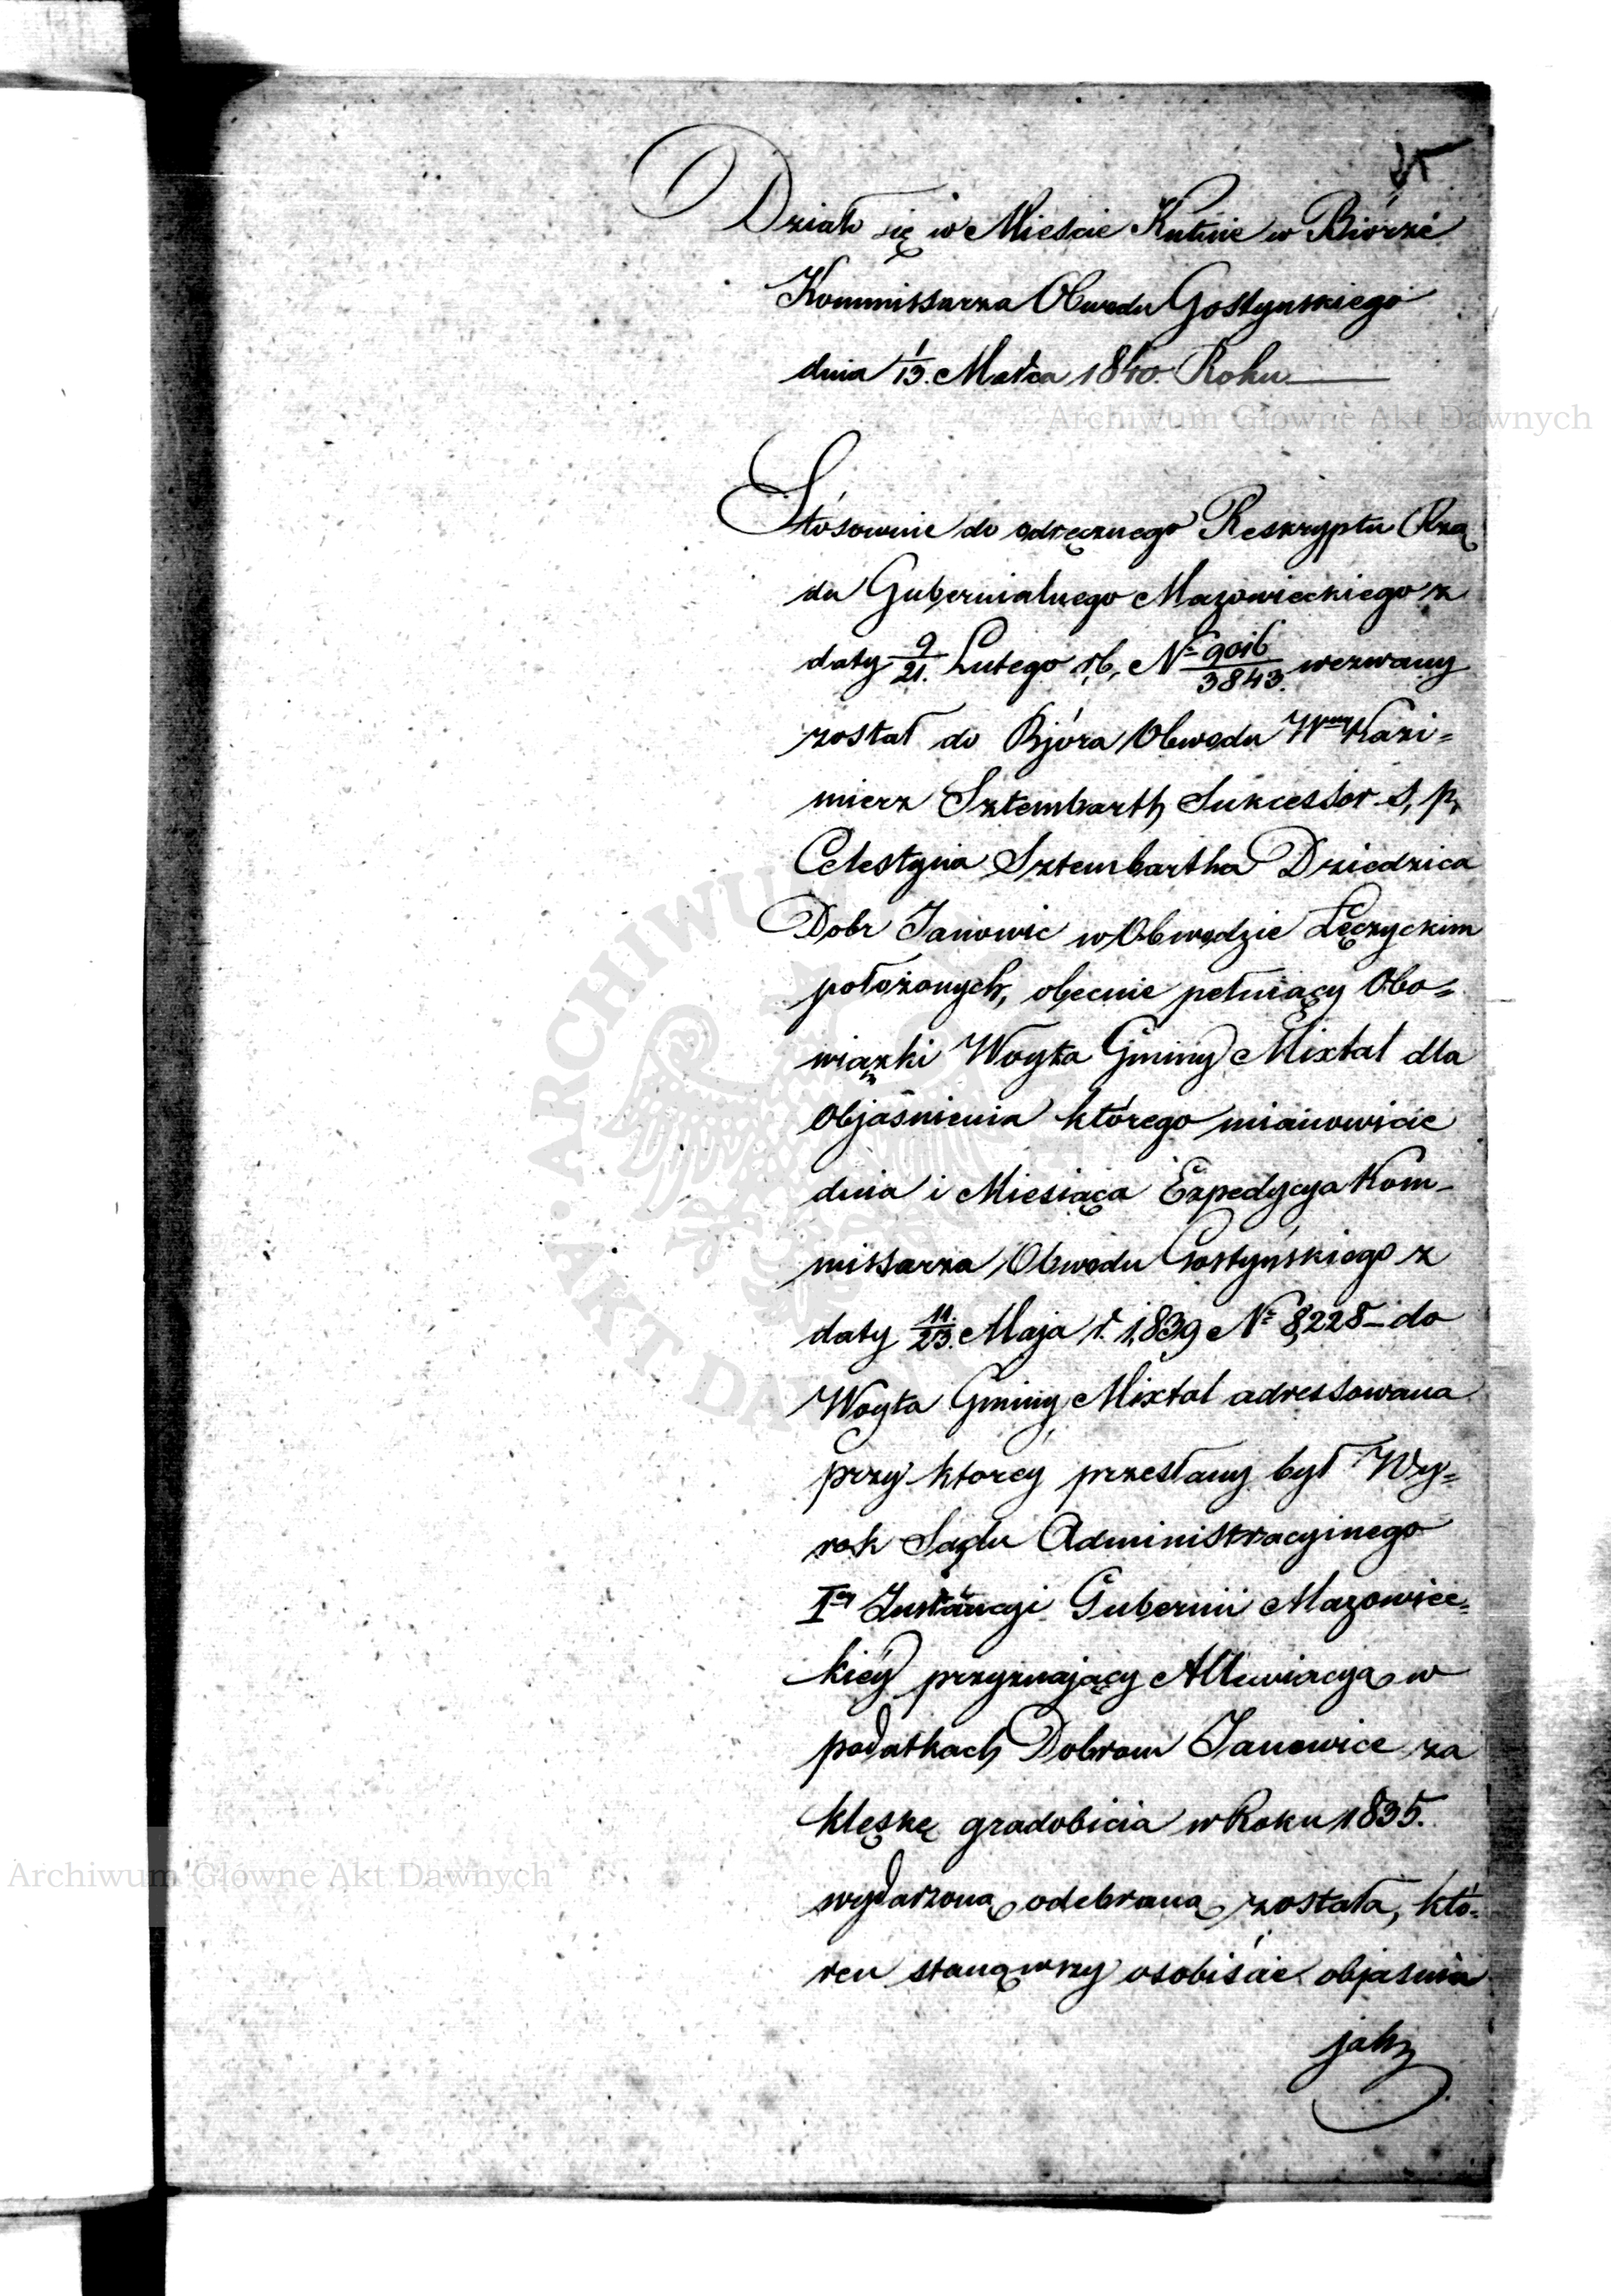 25
Działo się w Mieście Kutnie w Biórze
Kommissarza Obwodu Gostynskiego
dnia 1/13. Marca 1840. Roku
Archiwum Główne Akt Dawnych
Stósownie do odręcznego Reskryptu Rzą
du Gubernialnego Mazowieckiego z
daty 9/21. Lutego r. b. N= 9016/3843. wezwany
został do Bjóra Obwodu Wny Kazi=
mierz Sztembarth Sukcessor S. p.
Celestyna Sztembartha Dziedzica
Dobr Janowic w Obwodzie Łęczyckim
położonych, obecnie pełniący Obo=
wiązki Woyta Gminy Mixtal dla
Objaśnienia którego mianowicie
dnia i Miesiąca Expedycya Kom-
missarza Obwodu Gostyńskiego z
daty 11/23. Maja r. 1839 N= 8,228 do
Woyta Gminy Mixtal adressowana
przy ktorey przesłany był Wy=
rok Sądu Administracyinego
Iey Instancyi Gubernii Mazowiec=
kiéy przyznający Allewiacyą w
podatkach Dobrom Janowice za
klęskę gradobicia w Roku 1835.
wydarzoną odebraną została, któ=
ren stanąwszy osobiście objasnia
jak
Archiwum Główne Akt Dawnych